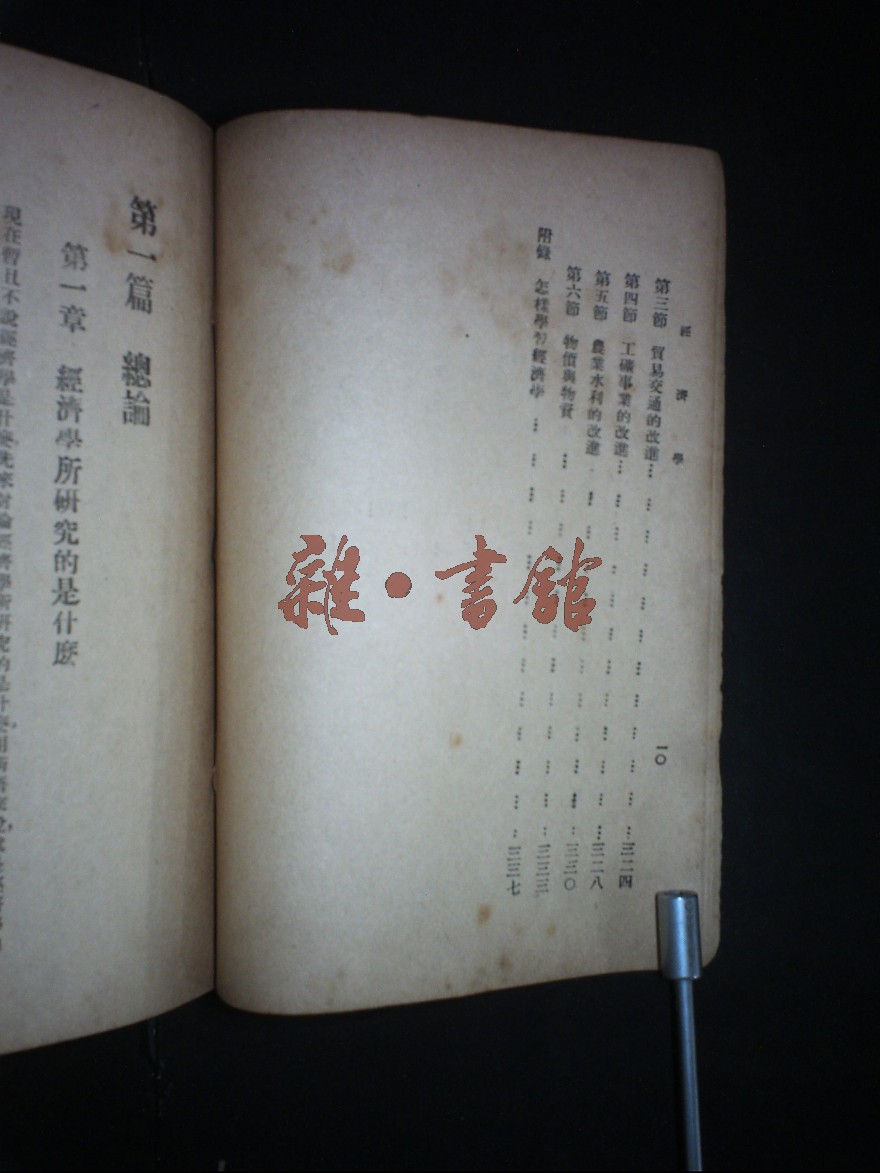 經濟學 一〇
第三節 貿易交通的改進……三二四
第四節 工礦事業的改進……三二八
第五節 農業水利的改進……三三〇
第六節 物價與物資……三三三
附錄 怎樣學習經濟學……三三七
第一篇 總論
第一章 經濟學所研究的是什麽
現在暫且不說經濟學是什麽，先來討論經濟學所研究的是什麽
雜·書館